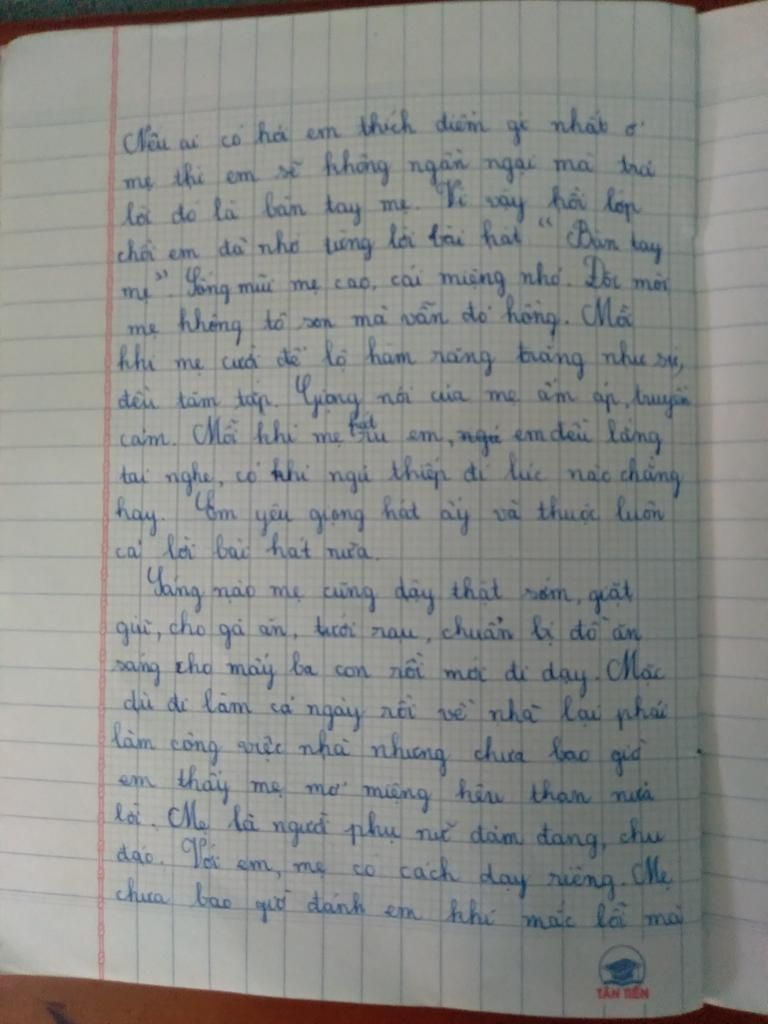 Nếu ai có hỏi em thích điểm gì nhất ở
mẹ thì em sẽ không ngần ngại mà trả
lời đó là bàn tay mẹ. Vì vậy hồi lớp
chồi em đã nhớ từng lời bài hát " Bàn tay
mẹ". Sống mũi mẹ cao, cái miệng nhỏ. Đôi môi
mẹ không tô son mà vẫn đỏ hồng. Mỗi
khi mẹ cười để lộ hàm răng trắng như sứ,
đều tăm tắp. Giọng nói của mẹ ấm áp, truyền
cảm. Mỗi khi mẹ hát ru em, ngủ em đều lắng
tai nghe, có khi ngủ thiếp đi lúc nào chẳng
hay. Em yêu giọng hát ấy và thuộc luôn
cả lời bài hát nữa.
Sáng nào mẹ cũng dậy thật sớm, giặt
giũ, cho gà ăn, tưới rau, chuẩn bị đồ ăn
sáng cho mấy ba con rồi mới đi dạy. Mặc
dù đi làm cả ngày rồi về nhà lại phải
làm công việc nhà nhưng chưa bao giờ
em thấy mẹ mở miệng kêu than nửa
lời. Mẹ là người phụ nữ đảm đang, chu
đáo. Với em, mẹ có cách dạy riêng. Mẹ
chưa bao giờ đánh em khi mắc lỗi mà
TÂN TIẾN